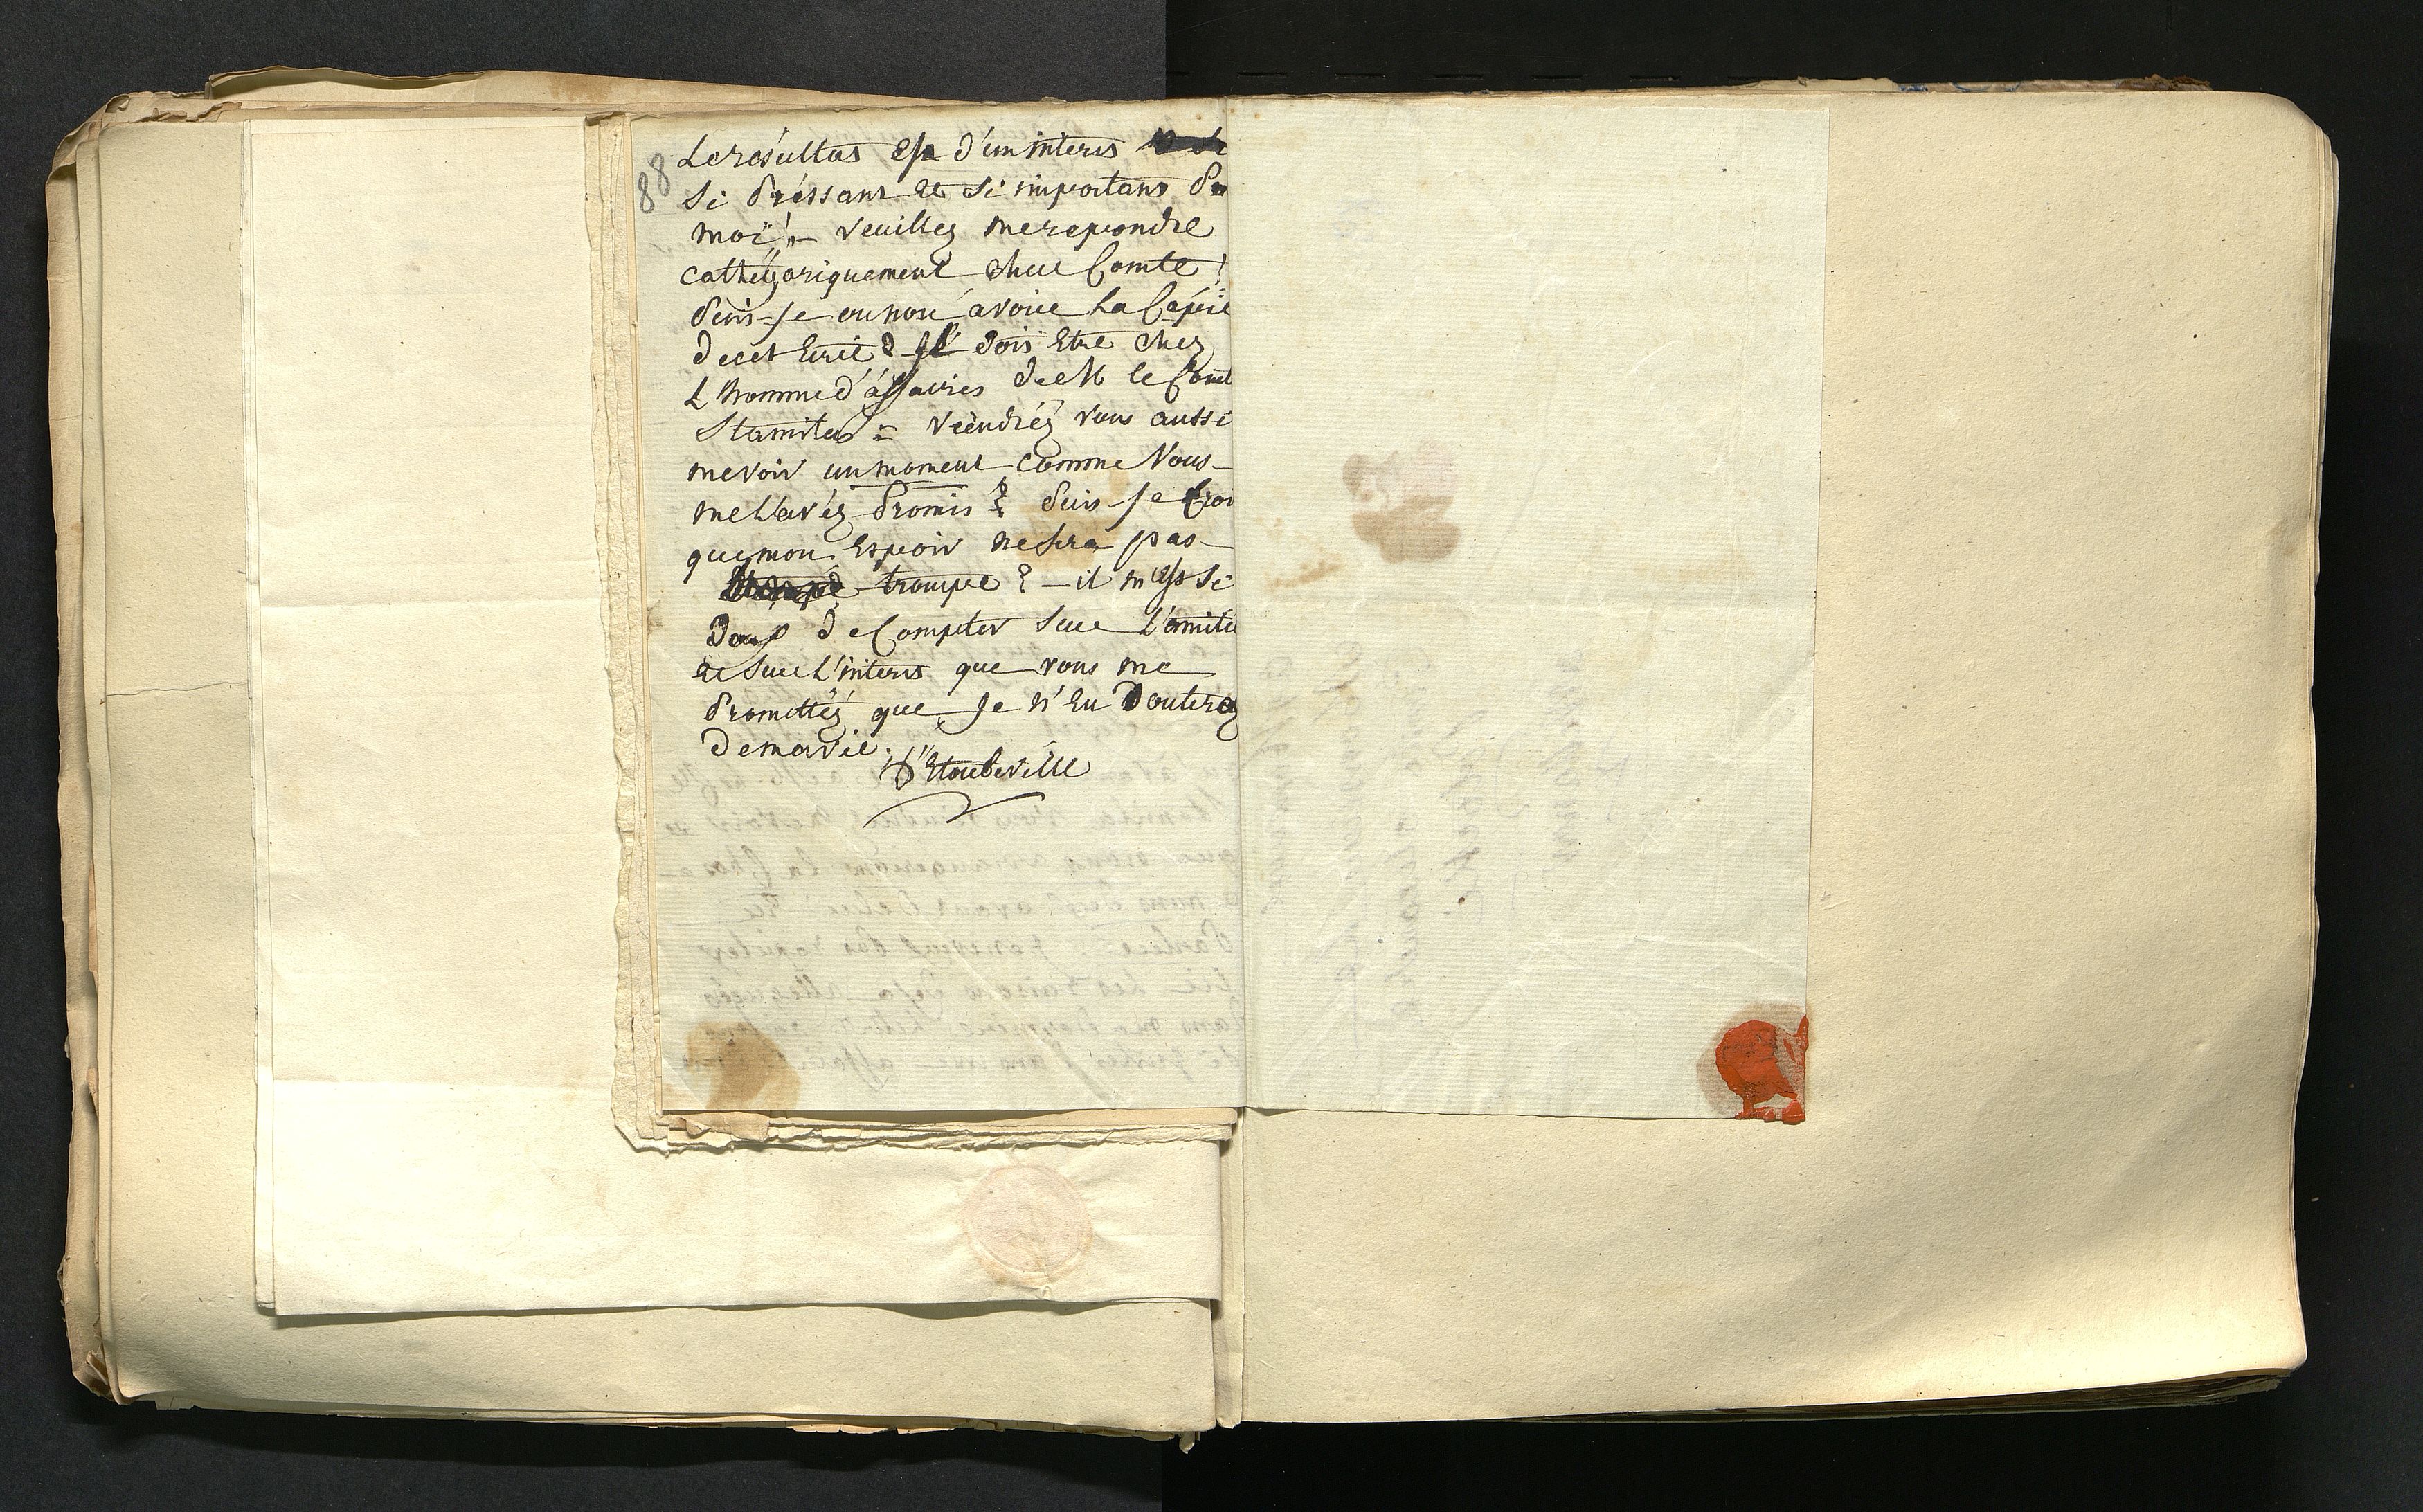 88
Le résultat est d'un interes
si préssant et si important pr
moi! – veuillez me repondre
cathégoriquement cher Comte!
puis-je ou non avoir la Copie
de cet Ecrit? Il dois Etre chez
L'homme d'affaires de M le Comt
Stamites = Viendrés vous aussi
me voir un moment comme vous
me l'avés promis? puis-je Croi
que mon Espoir ne sera pas
trompé? – il m'est si
doux de Compter sur L'amitie
et sur L'interes que vous me
promettés que je n'En douterai
de ma vie.
D'Etouteville